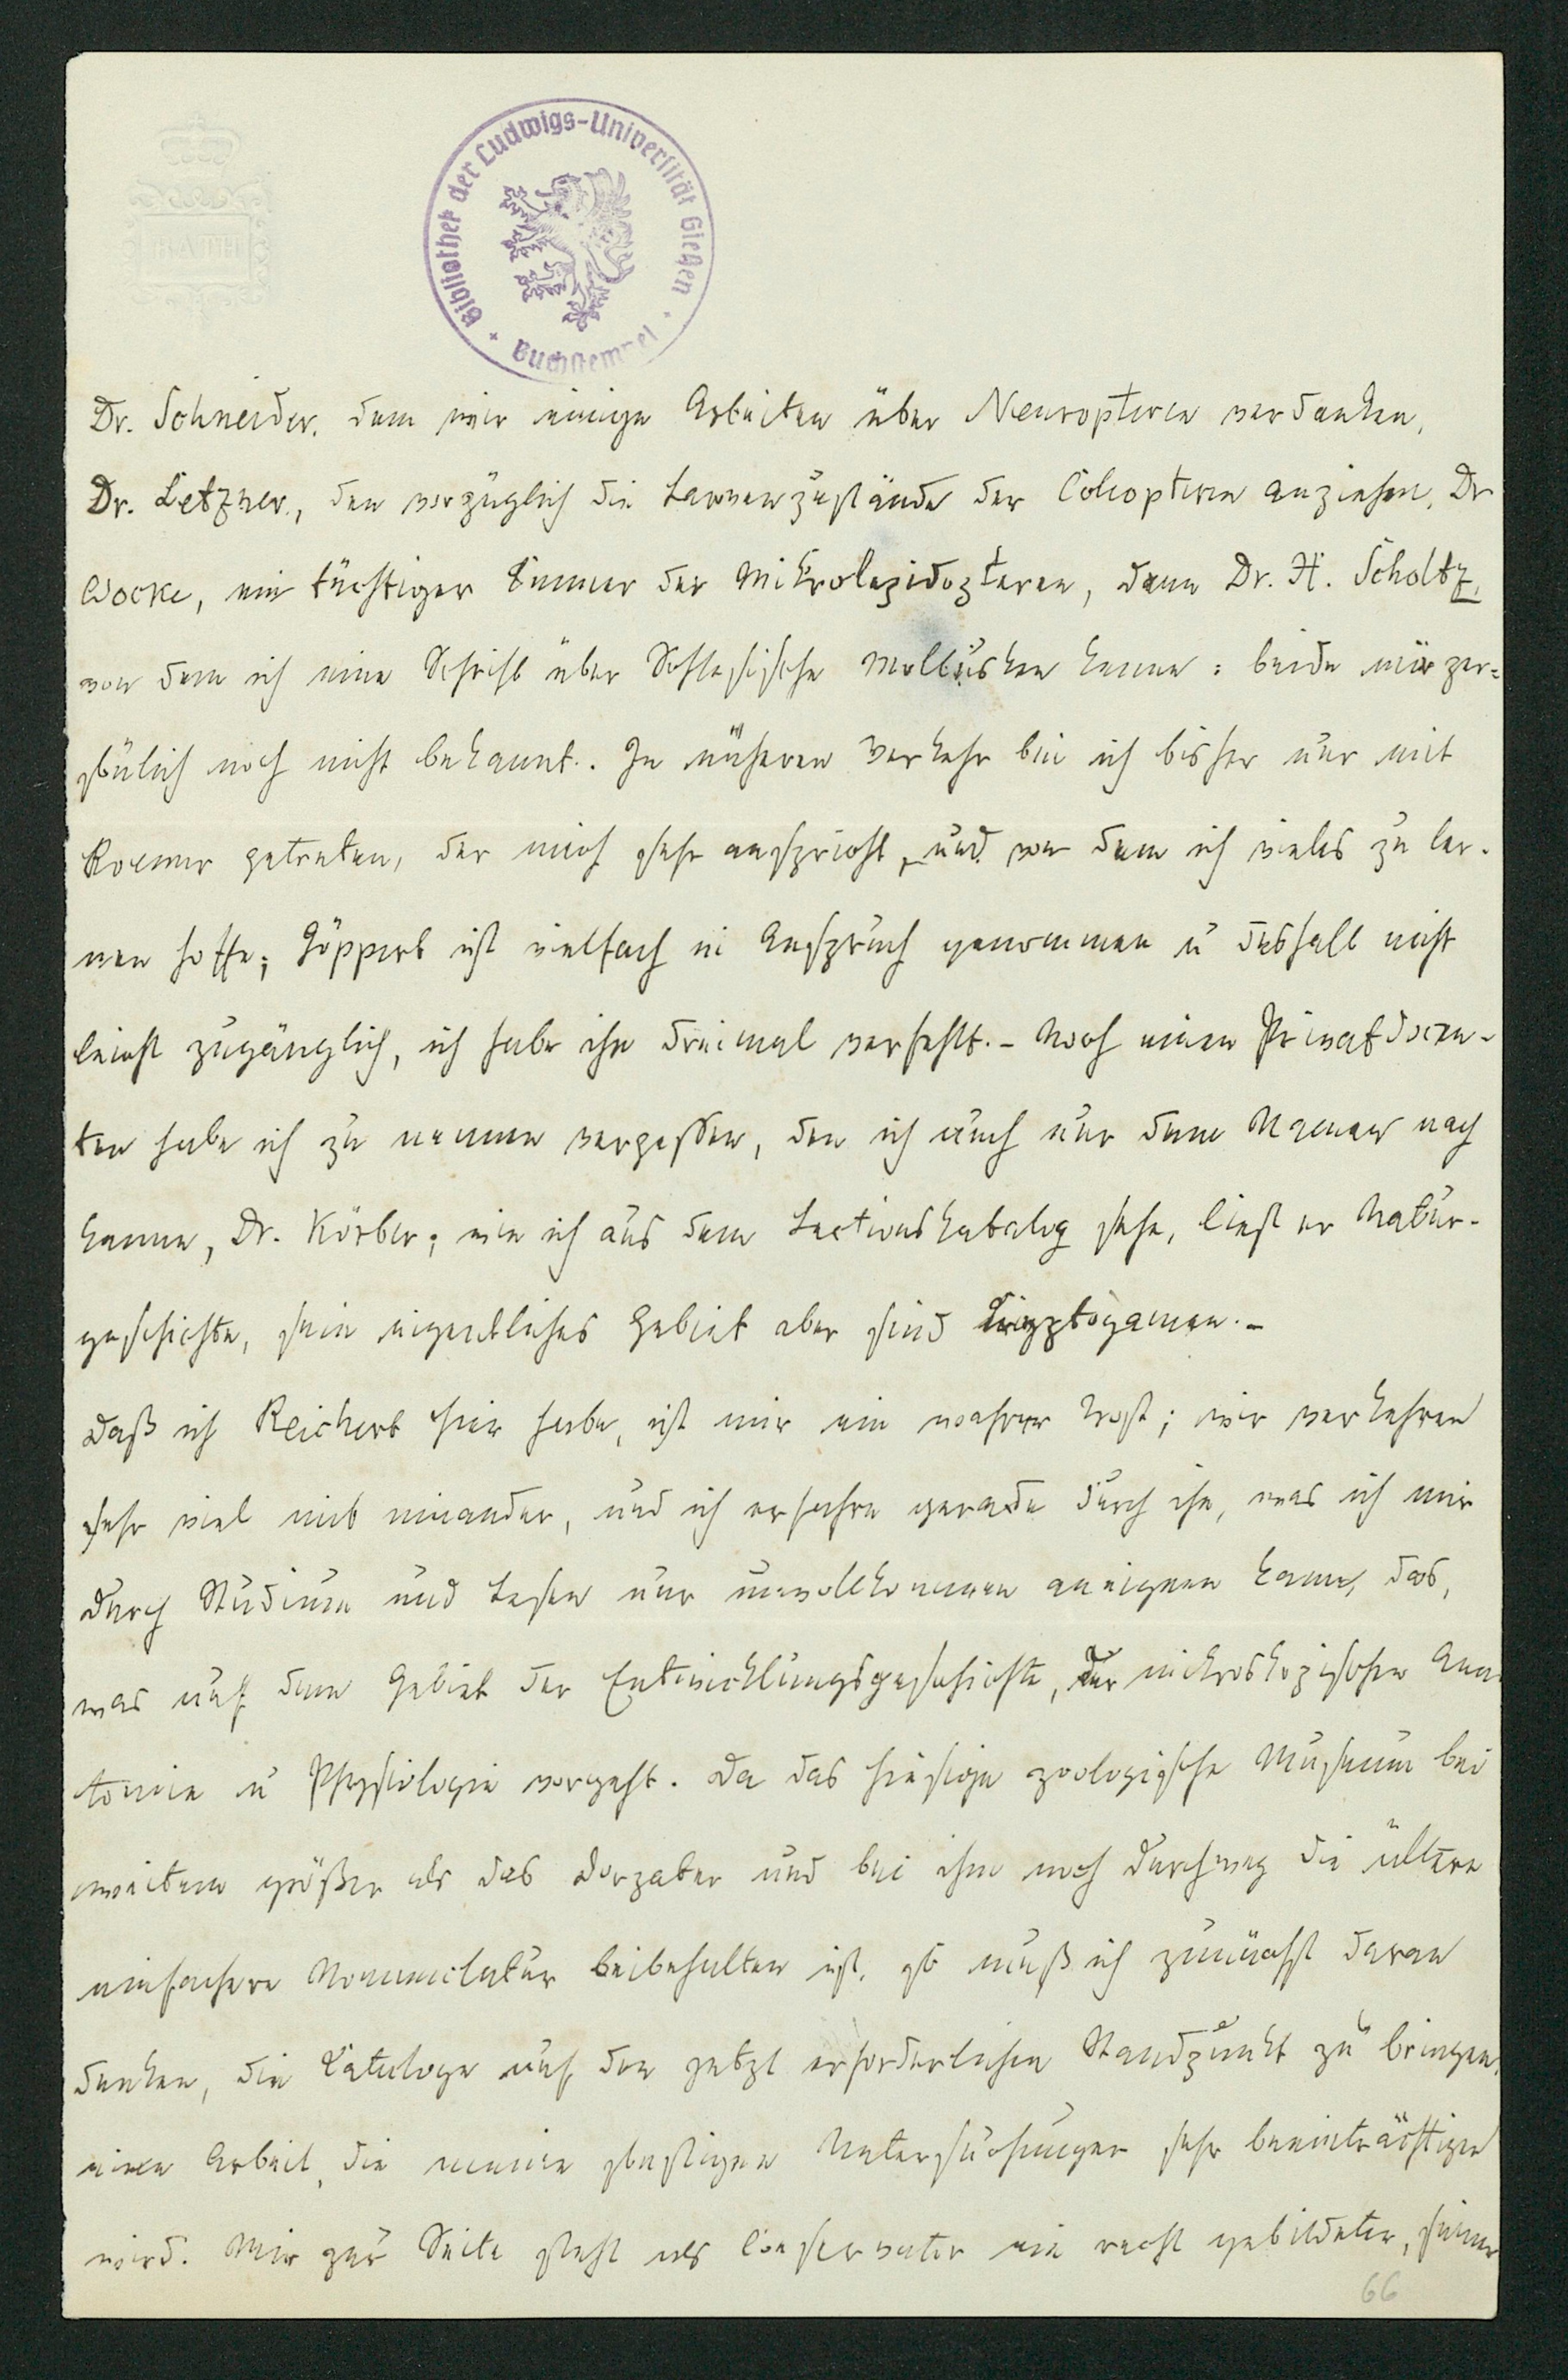 Bibliothek der Ludwigs-Universität Gießen
Buchstempel
BATH
Dr. Schneider, dem wir einige Arbeiten über Neuropteren verdanken,
Dr. Letzner, den vorzüglich die Larvenzustände der Coleopteren anziehen, Dr
Wocke, ein tüchtiger Kenner der Mikrolepidopteren, dann Dr. H. Scholtz,
von dem ich eine Schrift über Schlesische Mollusken kenne: beide mir per=
sönlich noch nicht bekannt. In näheren Verkehr bin ich bisher nur mit
Roemer getreten, der mich sehr anspricht, und von dem ich vieles zu ler-
nen hoffe; Göppert ist vielfach in Anspruch genommen u deshalb nicht
leicht zugänglich, ich habe ihn dreimal verfehlt. - Noch einen Privatdocen-
ten habe ich zu nennen vergessen, den ich auch nur dem Namen nach
kenne, Dr. Körber; wie ich aus dem Lectionskatalog sehe, liest er Natur-
geschichte, sein eigentliches Gebiet aber sind Cryptogamen. -
Daß ich Reichert hier habe, ist mir ein wahrer Trost; wir verkehren
sehr viel mit einander, und ich erfahre gerade durch ihn, was ich mir
durch Studium und Lesen nur unvollkommen aneignen kann, das,
was auf dem Gebiet der Entwicklungsgeschichte, der mikroskopischen Ana
tomie u Physiologie vorgeht. Da das hiesige zoologische Museum bei
weitem größer als das Dorpater und bei ihm noch durchweg die ältere
einfachere Nomenclatur beibehalten ist, so muß ich zunächst daran
denken, die Cataloge auf den jetzt erforderlichen Standpunkt zu bringen,
eine Arbeit, die meine sonstigen Untersuchungen sehr beeinträchtigen
wird. Mir zur Seite steht als Conservator ein recht gebildeter, seiner
66